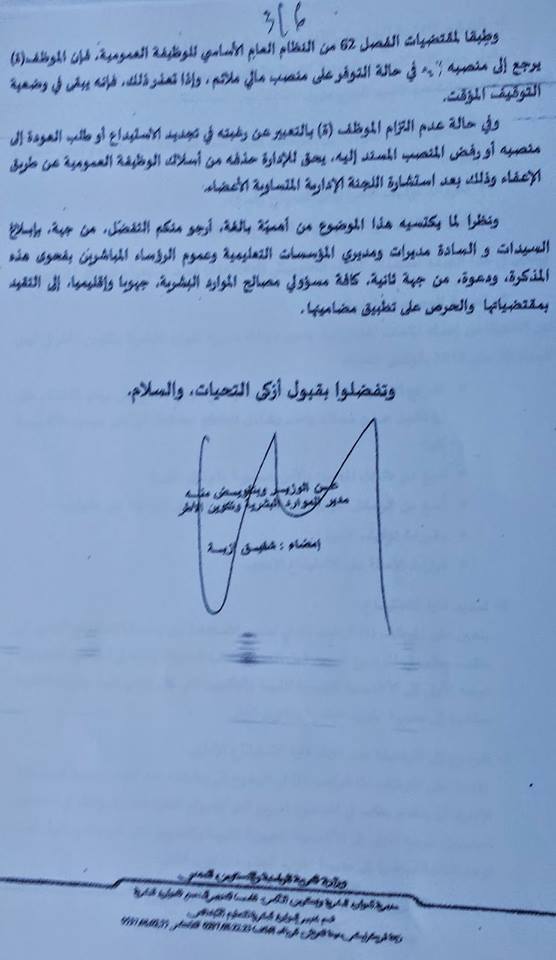 3/6
وطبقا لمقتضيات الفصل 62 من النظام العام الأساسي للوظيفة العمومية، فإن الموظف(ة)
يرجع إلى منصبه في حالة التوفر على منصب مالي ملائم، وإذا تعذر ذلك، فإنه يبقى في وضعية
التوقيف المؤقت.
وفي حالة عدم التزام الموظف (ة) بالتعبير عن رغبته في تجديد الاستيداع أو طلب العودة إلى
منصبه أو رفض المنصب المسند إليه، يحق للإدارة حذفه من أسلاك الوظيفة العمومية عن طريق
الإعفاء وذلك بعد استشارة اللجنة الإدارية المتساوية الأعضاء.
ونظرا لما يكتسيه هذا الموضوع من أهمية بالغة، أرجو منكم التفضل، من جهة، بإبلاغ
السيدات و السادة مديرات ومديري المؤسسات التعليمية وعموم الرؤساء المباشرين بفحوى هذه
المذكرة، ودعوة، من جهة ثانية، كافة مسؤولي مصالح الموارد البشرية، جهويا وإقليميا، إلى التقيد
بمقتضياتها والحرص على تطبيق مضامينها.
وتفضلوا بقبول أزكى التحيات، والسلام.
عن الوزير وبتفويض منه
مدير الموارد البشرية وتكوين الأطر
إمضاء : شفيق أزبة
وزارة التربية الوطنية والتكوين المهني